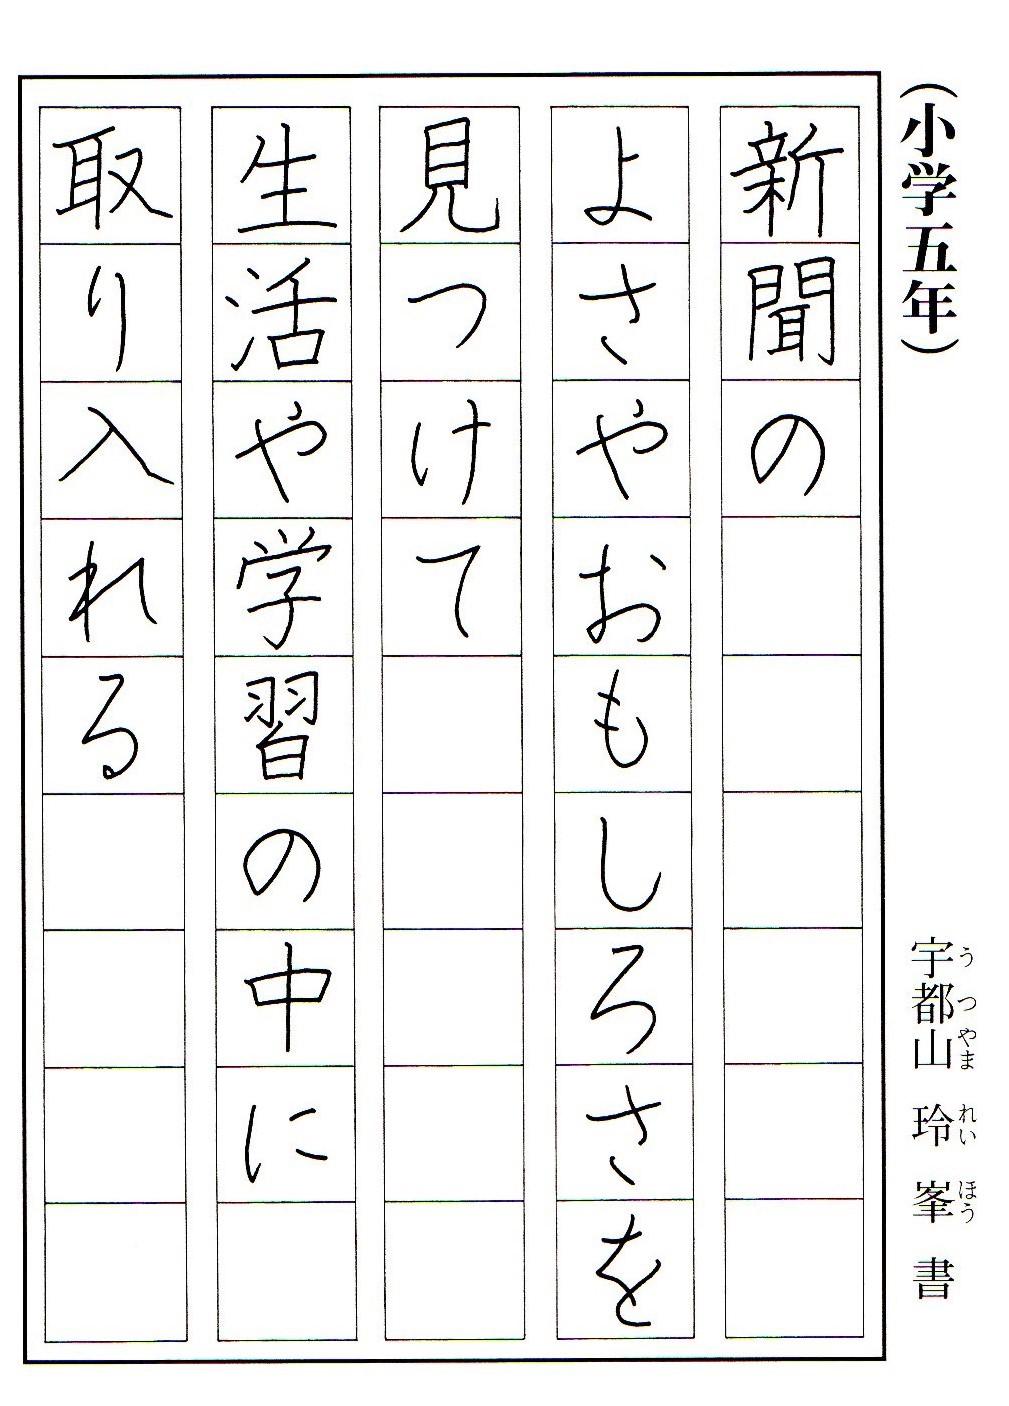 （小学五年）
宇都山 玲峯 書
うつやま れい ほう
新聞の
よさやおもしろさを
見つけて
生活や学習の中に
取り入れる